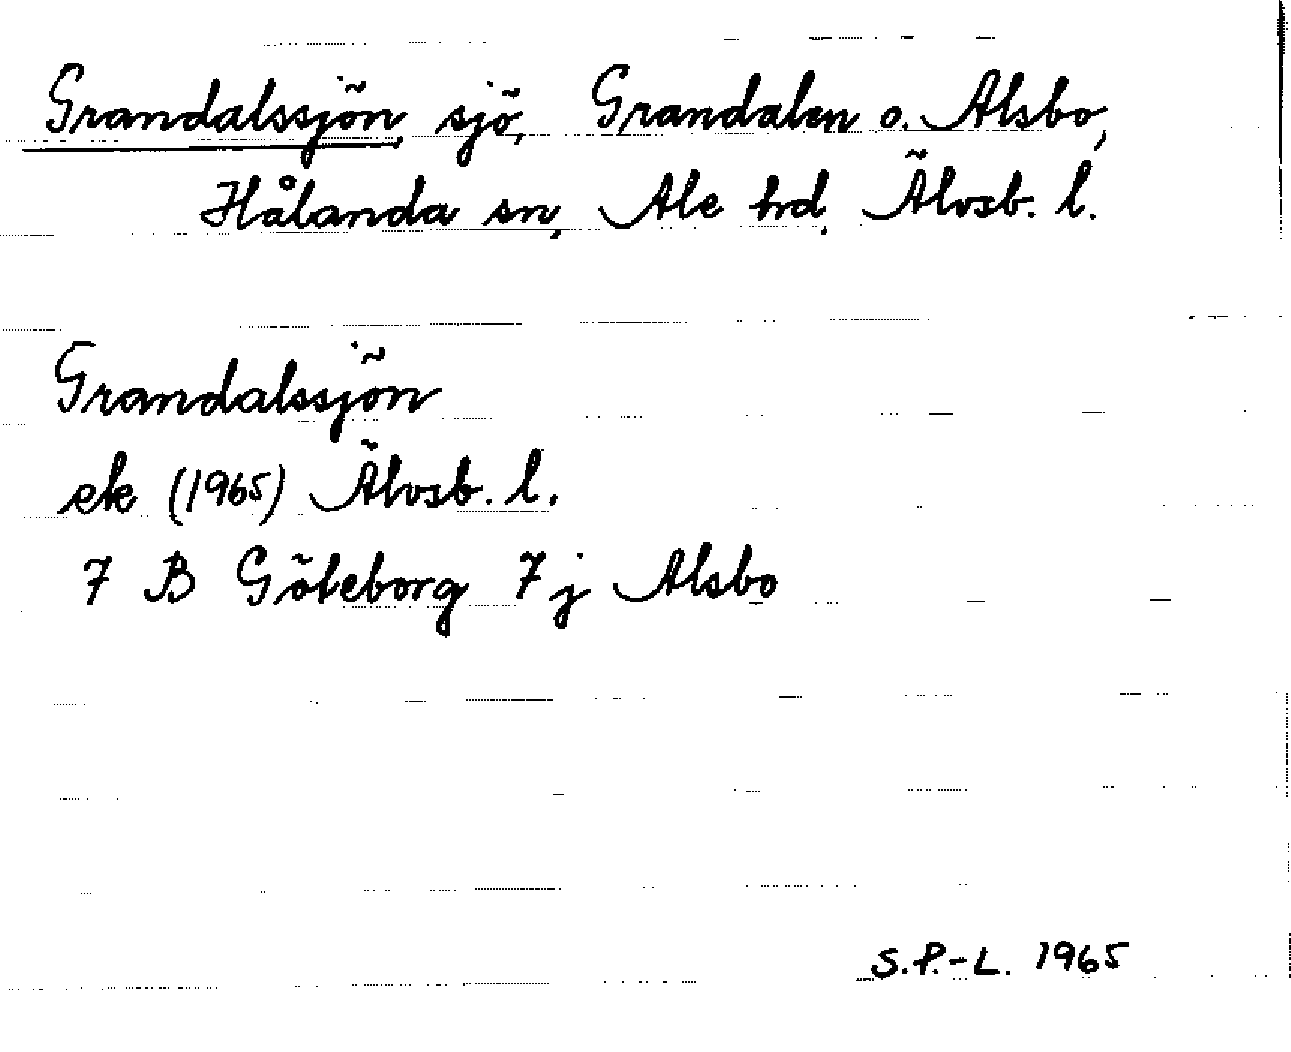 Grandalssjön, sjö, Grandalen o. Alsbo,
Hålanda sn, Ale hd, Älvsb. l.
Grandalssjön
ek (1965) Älvsb. l.
7 B Göteborg 7 j Alsbo
S.P.-L. 1965